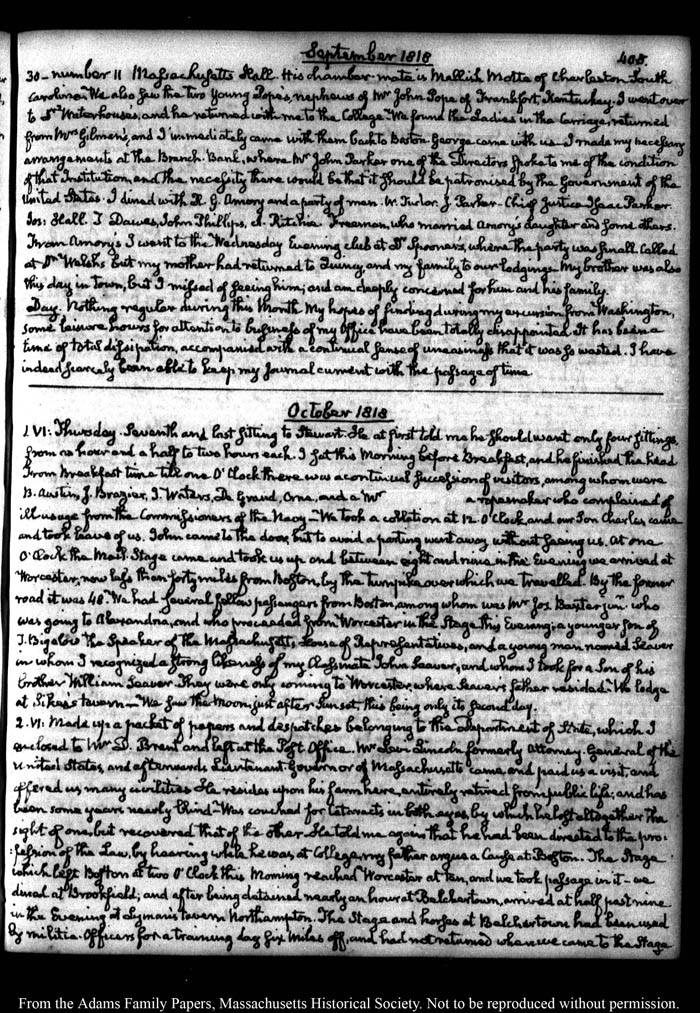 September 1818 408.
30- number 11 Massachusetts Hall. His chamber-mate is Mallish Motta of Charleston South
Carolina- We also saw the two Young Pope's, nephews of Mr John Pope of Frankfort, Kentucky. I went over
to Dr Waterhouse's, and he returned with me to the College- We found the Ladies in the Carriage, returned
from Mrs Gilmen's, and I immediately came with them back to Boston. George came with us- I made my necessary
arrangements at the Branch-Bank, where Mr John Parker one of the Directors spoke to me of the condition
of that Institution, and the necessity there would be that it should be patronised by the Government of the
United States. I dined with R. G. Amory and a party of men. W. Tudor, J. Parker- Chief Justice Isaac Parker
Jos: Hall. T Dawes, John Phillips, A. Ritchie Freeman, who married Amory's daughter and some others.
From Amory's I went to the Wednesday Evening club at Dr Spooner's, where the party was small. Called
at Dr Welsh's but my mother had returned to Quincy, and my family to our lodgings. My brother was also
this day in town, but I missed of seeing him; and am deeply concerned for him and his family.
Day. Nothing regular during this Month. My hopes of finding during my excursion from Washington,
some leisure hours for attention to business of my Office have been totally disappointed. It has been a
time of total dissipation, accompanied with a continual sense of uneasiness that it was so wasted. I have
indeed scarcely been able to keep my Journal current with the passage of time.
October 1818
1. VI: Thursday. Seventh and last sitting to Stewart. He at first told me he should want only four sittings,
from an hour and a half to two hours each. I sat this Morning before Breakfast, and he finished the head
From Breakfast time till one O'Clock there was a continual succession of visitors, among whom were
B. Austin, J. Brazier, J. Waters, De Grand, Orne, and a Mr a ropemaker who complained of
ill usage from the Commissioners of the Navy- We took a collation at 12 O'Clock, and our Son Charles came
and took leave of us. John came to the door, but to avoid a parting went away without seeing us. At one
O'Clock the Mail Stage came and took us up and between eight and nine in the Evening we arrived at
Worcester, now less than forty miles from Boston, by the turnpike over which we travelled. By the former
road it was 48. We had several fellow passengers from Boston, among whom was Mr Jos. Baxter junr. who
was going to Alexandria, and who proceeded from Worcester in the Stage this Evening; a younger son of
T. Bigelow the Speaker of the Massachusetts House of Representatives, and a young man named Seaver
in whom I recognized a strong likeness of my Classmate John Seaver, and whom I took for a Son of his
brother William Seaver. They were only coming to Worcester, where Seaver's father resided- We lodge
at Sikes's tavern- We saw the Moon, just after Sun set, this being only its second day.
2. VI: Made up a packet of papers and despatches belonging to the Department of State, which I
enclosed to Mr D. Brent and left at the Post Office. Mr Levi Lincoln formerly Attorney-General of the
United States, and afterwards Lieutenant-Governor of Massachusetts came and paid us a visit, and
offered us many civilities. He resides upon his farm here, entirely retired from public life; and has
been some years nearly blind- Was couched for Cataracts in both eyes, by which he lost altogether the
sight of one, but recovered that of his other. He told me again that he had been directed to the pro-
:fession of the Law, by hearing while he was at College, my father argue a Cause at Boston. The Stage
which left Boston at two O'Clock this Morning reached Worcester at ten, and we took passage in it- we
dined at Brookfield; and after being detained nearly an hour at Belchertown, arrived at half past nine
in the Evening at Lyman's tavern Northampton. The Stage and horses at Belchertown had been used
by militia-Officers for a training day six miles off, and had not returned when we came to the Stage
From the Adams Family Papers, Massachusetts Historical Society. Not to be reproduced without permission.